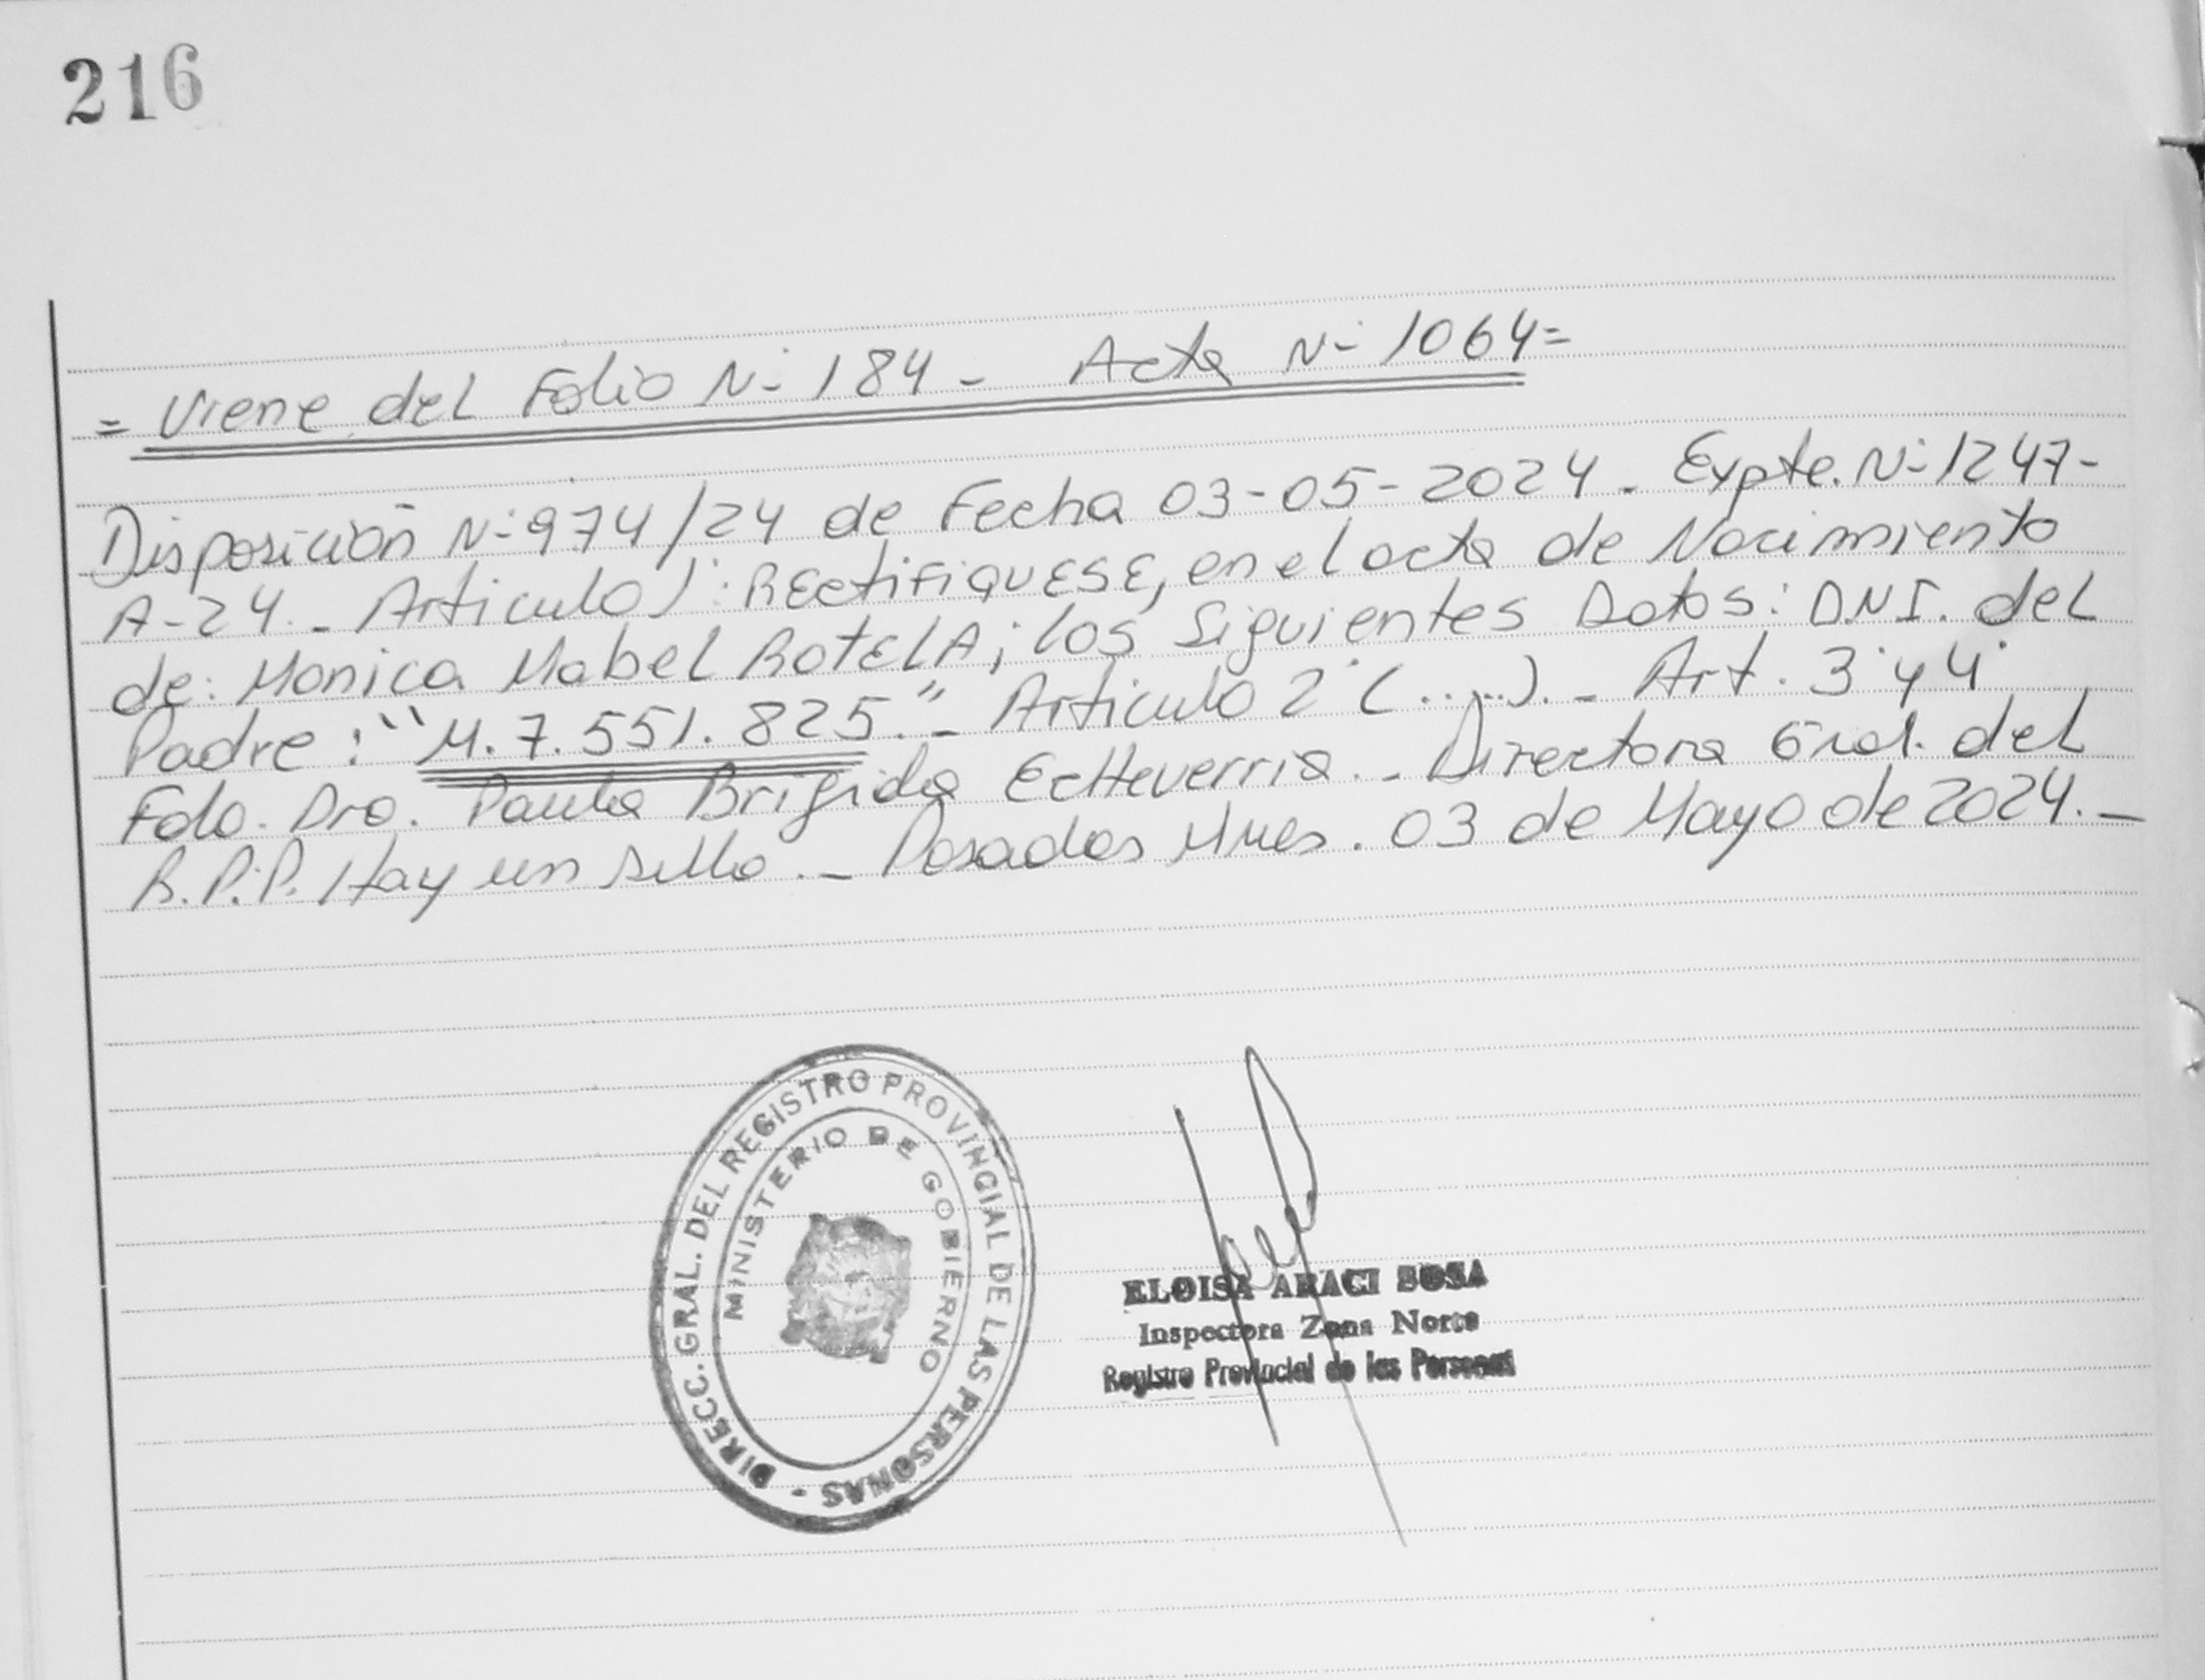 216
= Viene del Folio N° 184 - Acta N° 1064 =
Disposición N° 974/24 de Fecha 03-05-2024. Expte. N° 1247-
A-24. - Articulo 1°: RECtiFIQUESE, en el acta de Nacimiento
de: Monica Mabel ROtELA; los Siguientes Datos: D.N.I. del
Padre: "M. 7.551.825." - Articulo 2° (.....). - Art. 3° y 4°
Fdo. Dra. Paula Brigida Echeverria. - Directora Gral. del
R.P.P. Hay un sello. - Posadas Mnes. 03 de Mayo de 2024. -
DIRECC. GRAL. DEL REGISTRO PROVINCIAL DE LAS PERSONAS -
MINISTERIO DE GOBIERNO
ELOISA ARACI SOSA
Inspectora Zona Norte
Registro Provincial de las Personas